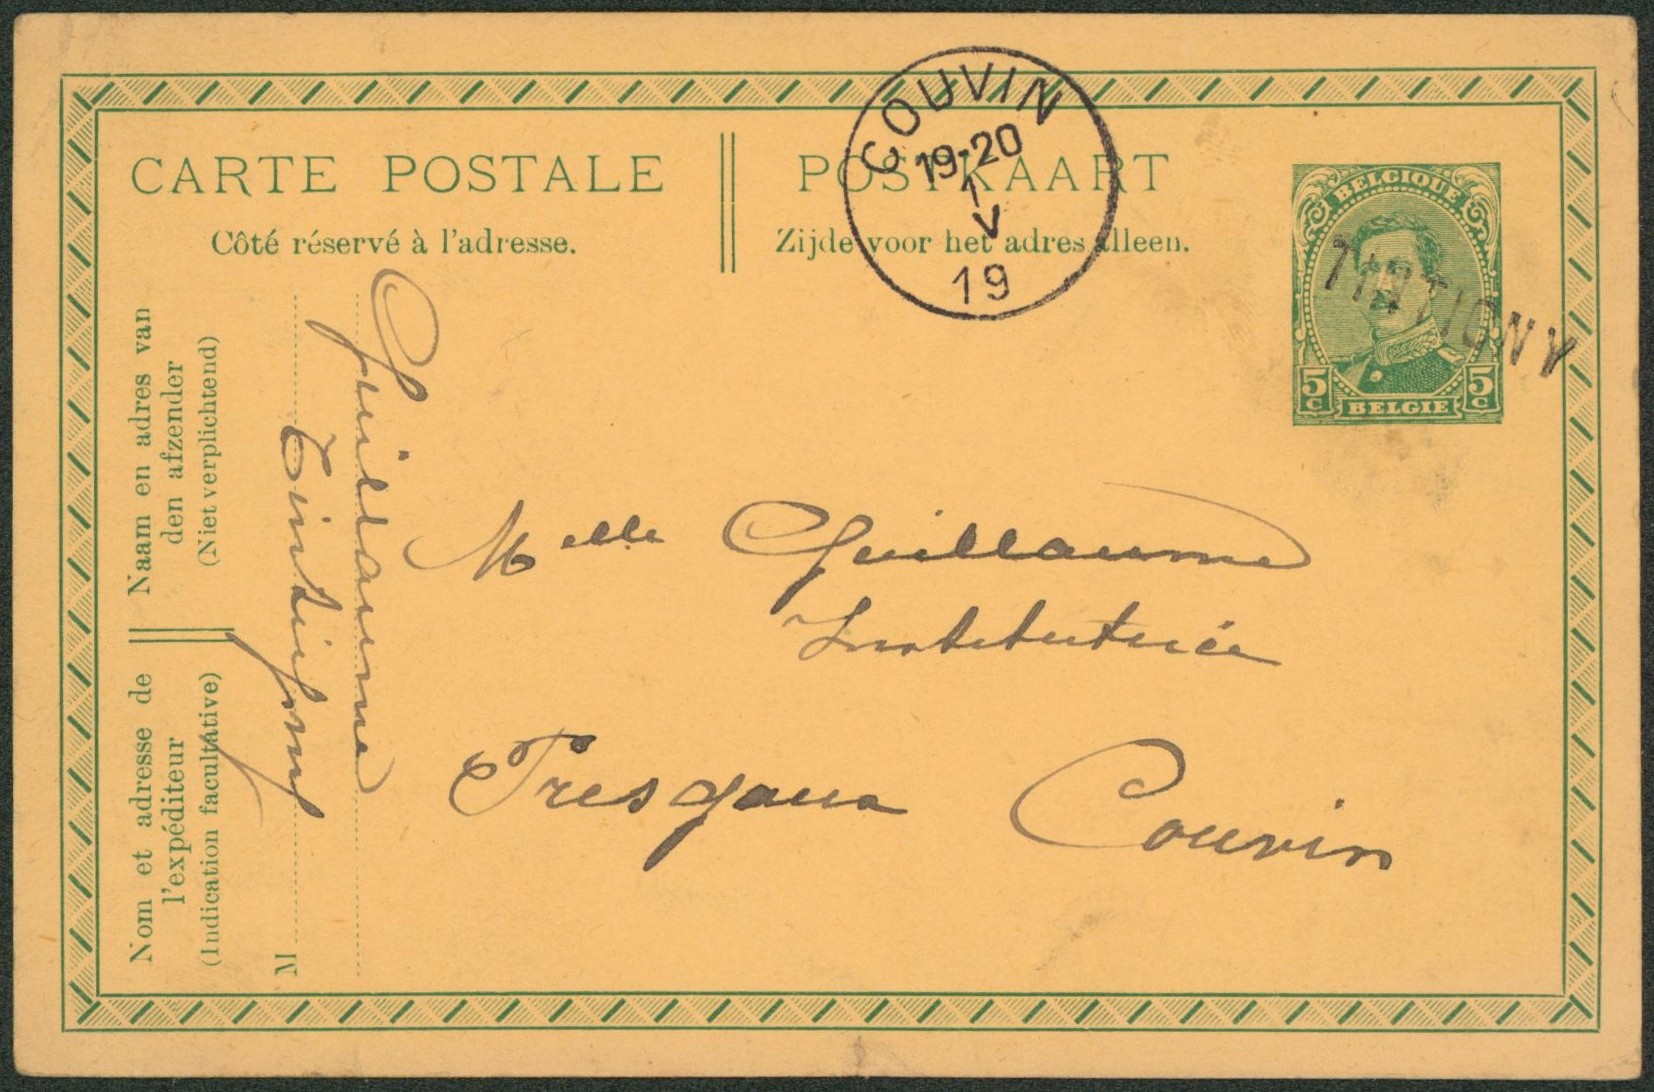 CARTE POSTALE
Côté réservé à l'adresse.
POSTKAART
Zijde voor het adres alleen.
COUVIN
19-20
1
V
19
BELGIQUE
5 C
5 C
BELGIE
Naam en adres van
den afzender
(Niet verplichtend)
Nom et adresse de
l'expéditeur
(Indication facultative)
M
Guillaume
Melle Guillaume
Institutrice
Couvin